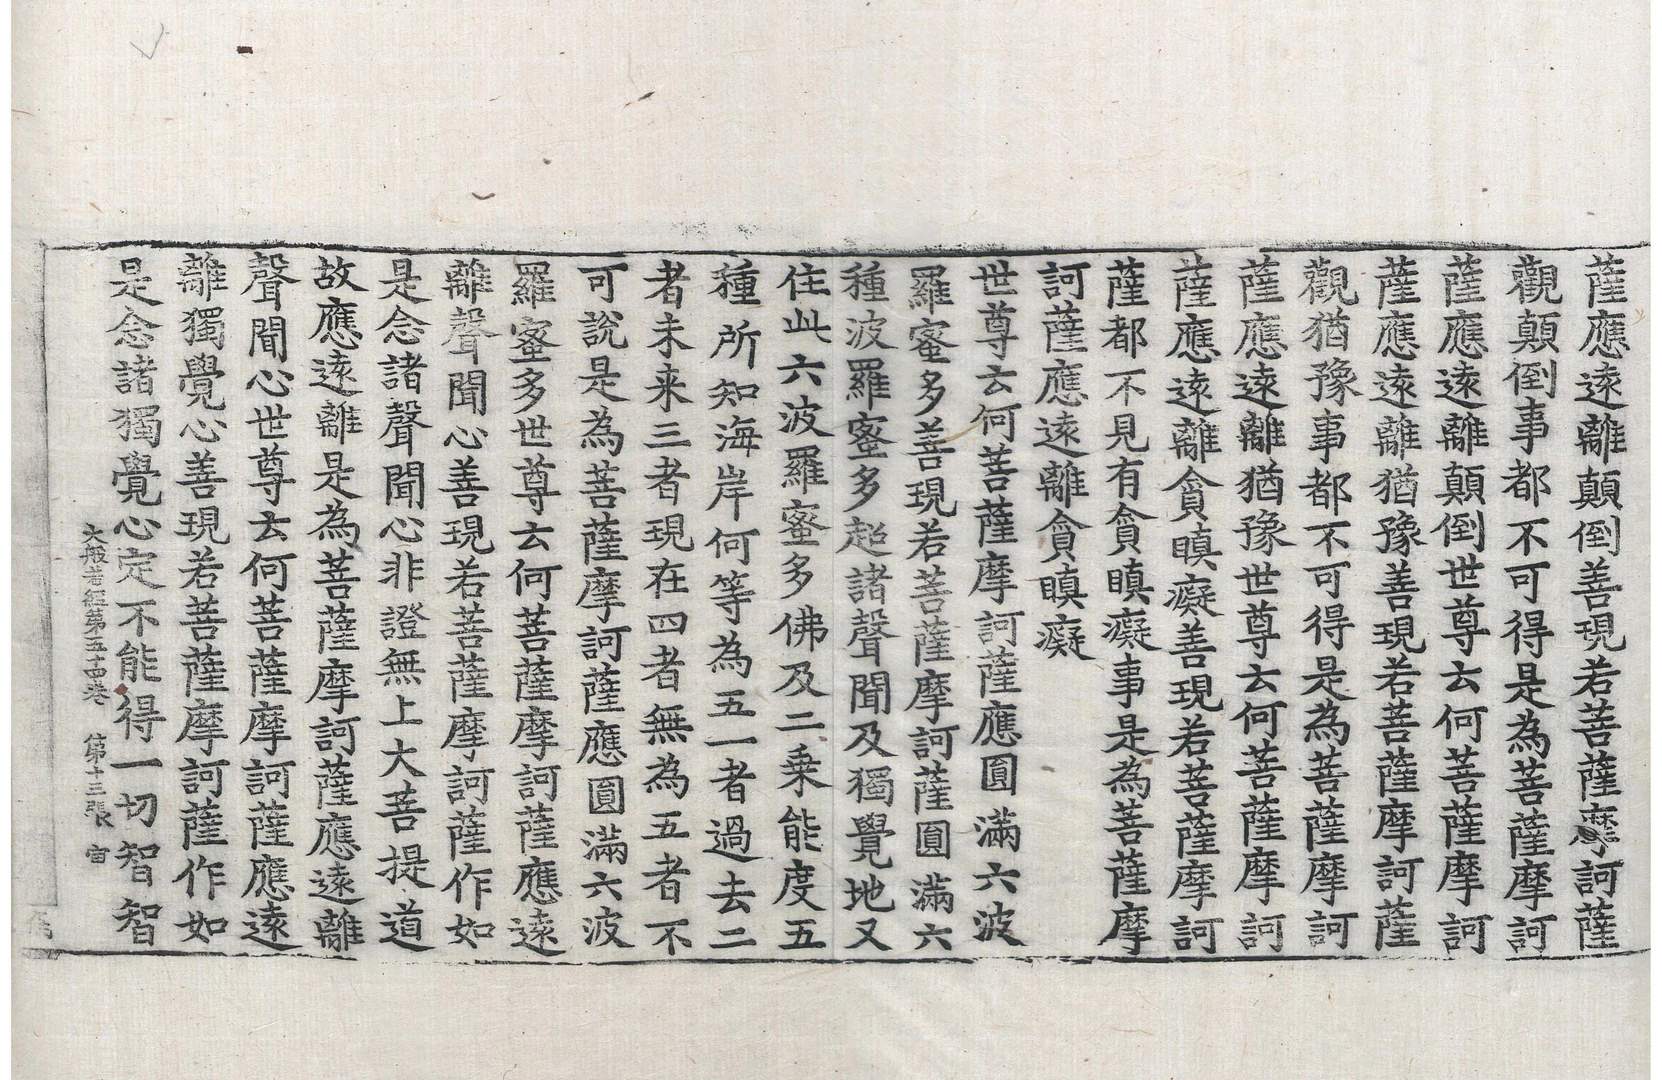 薩應遠離顛倒善現若菩薩摩訶薩
觀顛倒事都不可得是為菩薩摩訶
薩應遠離顛倒世尊云何菩薩摩訶
薩應遠離猶豫善現若菩薩摩訶薩
觀猶豫事都不可得是為菩薩摩訶
薩應遠離猶豫世尊云何菩薩摩訶
薩應遠離貪瞋癡善現若菩薩摩訶
薩都不見有貪瞋癡事是為菩薩摩
訶薩應遠離貪瞋癡
世尊云何菩薩摩訶薩應圓滿六波
羅蜜多善現若菩薩摩訶薩圓滿六
種波羅蜜多超諸聲聞及獨覺地又
住此六波羅蜜多佛及二乗能度五
種所知海岸何等為五一者過去二
者未来三者現在四者無為五者不
可說是為菩薩摩訶薩應圓滿六波
羅蜜多世尊云何菩薩摩訶薩應遠
離聲聞心善現若菩薩摩訶薩作如
是念諸聲聞心非證無上大菩提道
故應遠離是為菩薩摩訶薩應遠離
聲聞心世尊云何菩薩摩訶薩應遠
離獨覺心善現若菩薩摩訶薩作如
是念諸獨覺心定不能得一切智智
大般若經第五十四卷 第十三張 宙